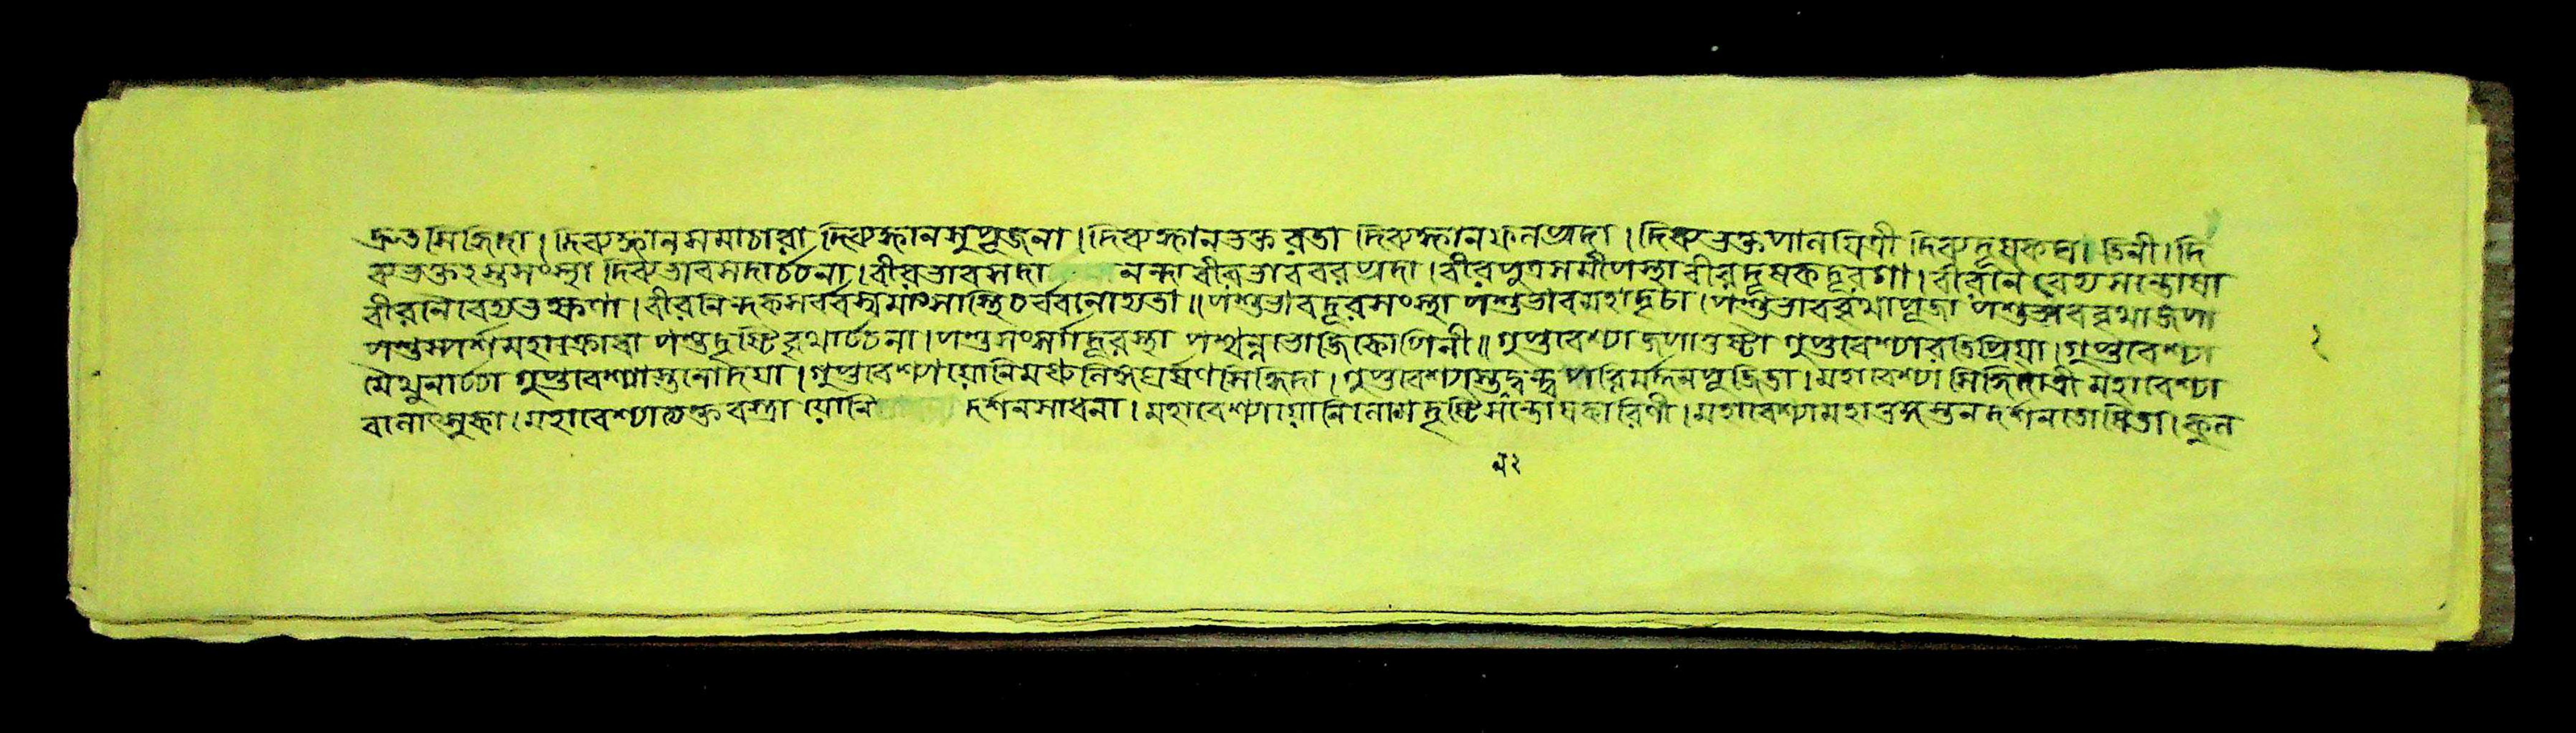 দ্রুতসিদ্ধিদা। দিব্যজ্ঞানসমাচারা দিব্যজ্ঞানসুপূজনা। দিব্যজ্ঞানভক্তরতা দিব্যজ্ঞানফলপ্রদা। দিব্যভক্তপালয়িত্রী দিব্যদূষকঘাতিনী। দি
ব্যভক্তহস্তসংস্থা দিব্যভাবসদার্চ্চনা। বীরভাবসদা নন্দা বীরভাববরপ্রদা। বীরপুত্রসমীপস্থা বীরদূষকদূরগা। বীরনৈবেদ্যসন্তোষা
বীরনৈবেদ্যভক্ষণা। বীরনিন্দকসর্ব্বস্বমাংসাস্থিচর্ব্বনোদ্যতা॥ পশুভাবদূরসংস্থা পশুভাবমহাদৃঢা। পশুভাববৃথাপূজা পশুভাববৃথাজপা
পশুস্পর্শমহাক্রোধা পশুদৃষ্টিবৃথার্চ্চনা। পশুসংসর্গদূরস্থা পশ্বন্নভোজিকোপিনী॥ গুপ্তবেশ্যাজপাতুষ্টা গুপ্তবেশ্যারতিপ্রিয়া। গুপ্তবেশ্যা
মৈথুনার্চ্চা গুপ্তবেশ্যাস্তনোদয়া। গুপ্তবেশ্যাযোনিমধ্যলিঙ্গঘর্ষণসিদ্ধিদা। গুপ্তবেশ্যাস্তনদ্বন্দ্বপরিমর্দ্দনপূজিতা। মহাবেশ্যাসিদ্ধিদাত্রী মহাবেশ্যা
মহাবেশ্যাত্যক্তবস্ত্রা যোনি দর্শনসাধনা। মহাবেশ্যাযোনিলোমদৃষ্টিসন্তোষকারিণী। মহাবেশ্যামহাতুঙ্গস্তনদর্শনতোষিতা। কুল
২